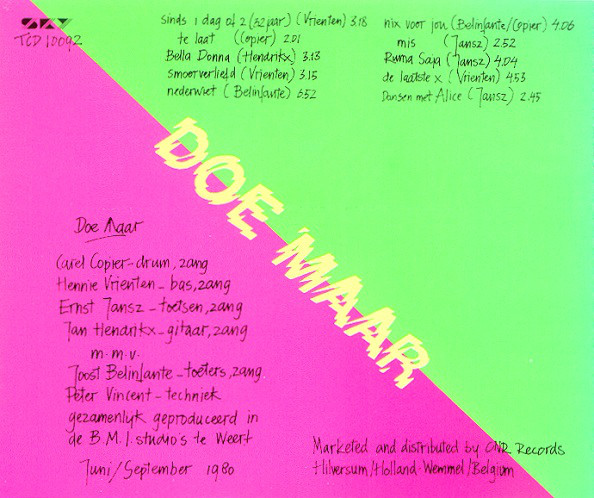 SKY
TCD 10092
sinds 1 dag of 2 (32 jaar) (Vrienten) 3.18
te laat (Copier) 2.01
Bella Donna (Hendrikx) 3.13
smoorverliefd (Vrienten) 3.15
nederwiet (Belinfante) 5.52
nix voor jou (Belinfante/Copier) 4.06
mis (Jansz) 2.52
Ruma Saja (Jansz) 4.04
de laatste x (Vrienten) 4.53
Dansen met Alice (Jansz) 2.45
DOE MAAR
Doe Maar
Carel Copier - drum, zang
Hennie Vrienten - bas, zang
Ernst Jansz - toetsen, zang
Jan Hendrikx - gitaar, zang
m.m.v.
Joost Belinfante - toeters, zang.
Peter Vincent - techniek
gezamenlyk geproduceerd in
de B.M.I. studio's te Weert
Juni/September 1980
Marketed and distributed by CNR Records
Hilversum/Holland-Wemmel/Belgium